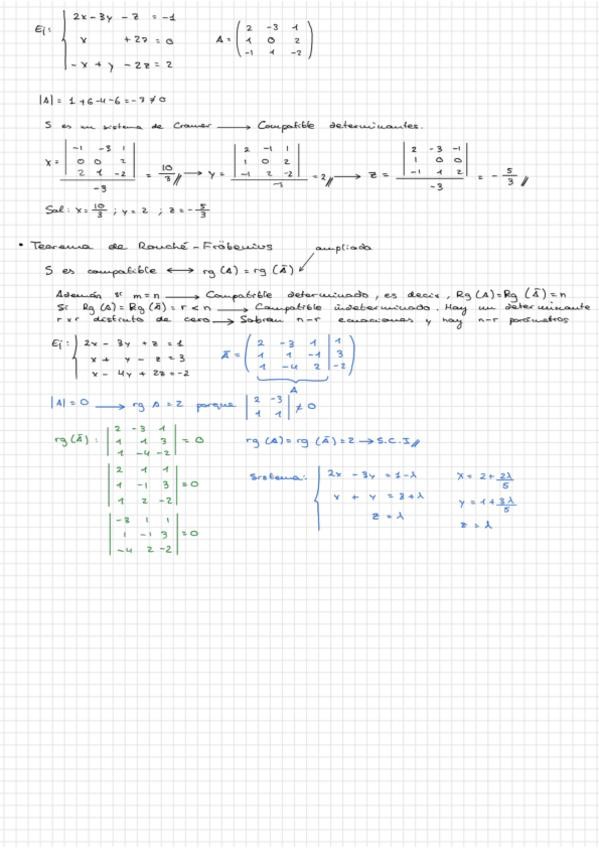 Ej: { 2x - 3y - z = -1
x + 2z = 0
-x + y - 2z = 2
A = ( 2 -3 1
1 0 2
-1 1 -2 )
|A| = 1 + 6 - 4 - 6 = -3 ≠ 0
S es un sistema de Cramer → Compatible determinantes.
x = | -1 -3 1 / 0 0 2 / 2 1 -2 | / -3 = 10/3 // → y = | 2 -1 1 / 1 0 2 / -1 2 -2 | / -3 = 2 // → z = | 2 -3 -1 / 1 0 0 / -1 1 2 | / -3 = -5/3 //
Sol: x = 10/3 ; y = 2 ; z = -5/3
• Teorema de Rouché-Fröbenius
ampliada
S es compatible ↔ rg(A) = rg(Ā)
Además si m=n → Compatible determinado, es decir, Rg(A)=Rg(Ā)=n
Si Rg(A)=Rg(Ā)=r<n → Compatible indeterminado. Hay un determinante
r×r distinto de cero → Sobran n-r ecuaciones y hay n-r parámetros
Ej: { 2x - 3y + z = 1
x + y - z = 3
x - 4y + 2z = -2
Ā = ( 2 -3 1 | 1
1 1 -1 | 3
1 -4 2 | -2 )
A
|A| = 0 → rg A = 2 porque | 2 -3 / 1 1 | ≠ 0
rg(Ā): | 2 -3 1 / 1 1 3 / 1 -4 -2 | = 0
rg(A) = rg(Ā) = 2 → S.C.I //
| 2 1 1 / 1 -1 3 / 1 2 -2 | = 0
| -3 1 1 / 1 -1 3 / -4 2 -2 | = 0
Sistema: { 2x - 3y = 1-λ
x + y = 3+λ
z = λ
x = 2 + 2λ/5
y = 1 + 3λ/5
z = λ